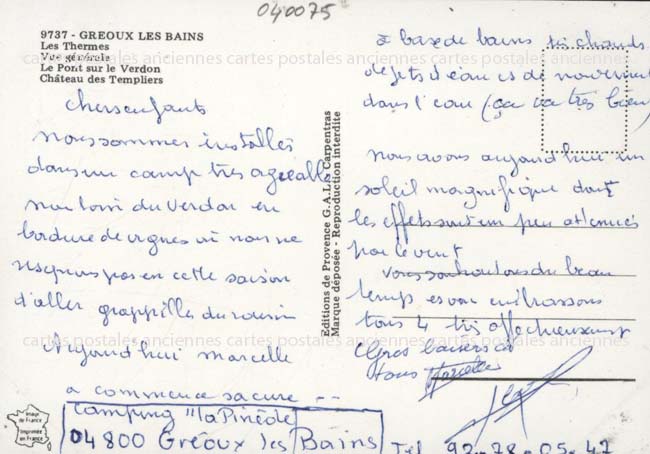 040075
9737 - GREOUX LES BAINS
Les Thermes
Vue générale
Le Pont sur le Verdon
Château des Templiers
cartes postales anciennes cartes postales anciennes cartes postales anciennes
Chers enfants
nous sommes installés
dans un camp très agréable
non loin du Verdon en
bordure de vignes où nous ne
risquons pas en cette saison
d'aller grappiller du raisin
Aujourd'hui marcelle
a commencé sa cure --
Camping "la Pinède"
04800 Gréoux les Bains
Image de France
Imprimée en France
Editions de Provence G.A.L. Carpentras
Marque déposée - Reproduction interdite
à base de bains chauds
de jets d'eau et de mouvement
dans l'eau (ça va très bien)
nous avons aujourd'hui un
soleil magnifique dont
les effets sont un peu atténués
par le vent
Vous souhaitons du beau
temps et vous embrassons
tous 4 très affectueusement
Gros baisers à
tous Marcelle
cartes postales anciennes cartes postales anciennes cartes postales anciennes
Tél 92-78-05-47